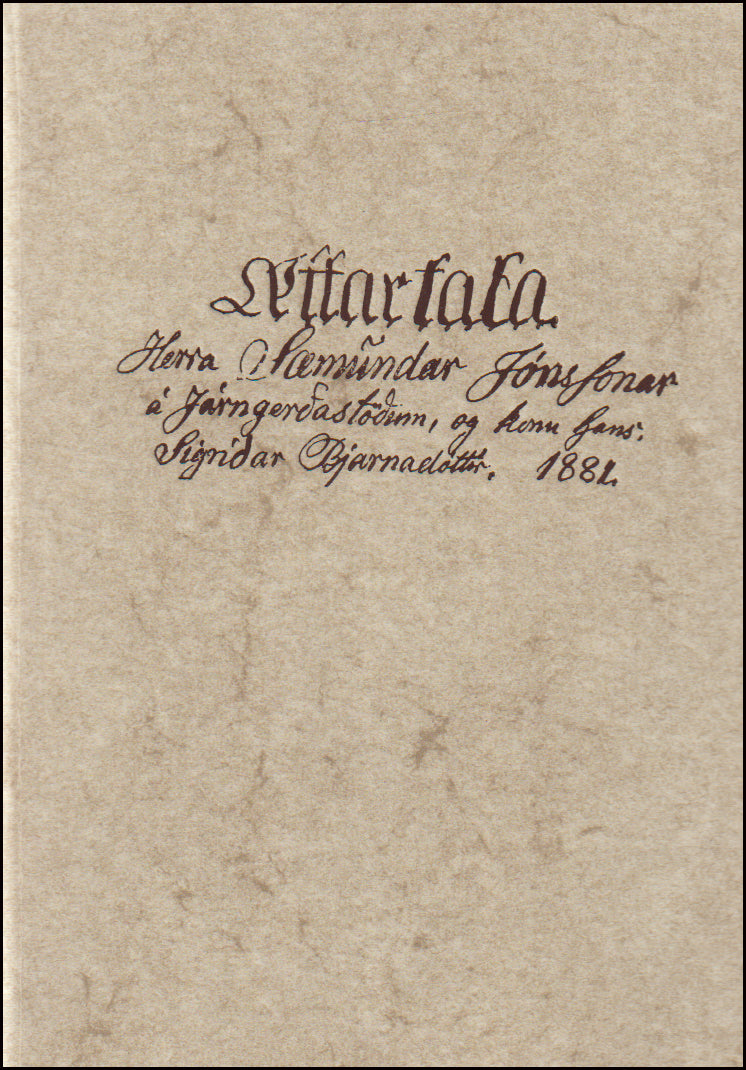 Ættartala.
Herra Sæmundar Jónssonar
á Járngerðastöðum, og konu hans.
Sigríðar Bjarnadóttir. 1881.